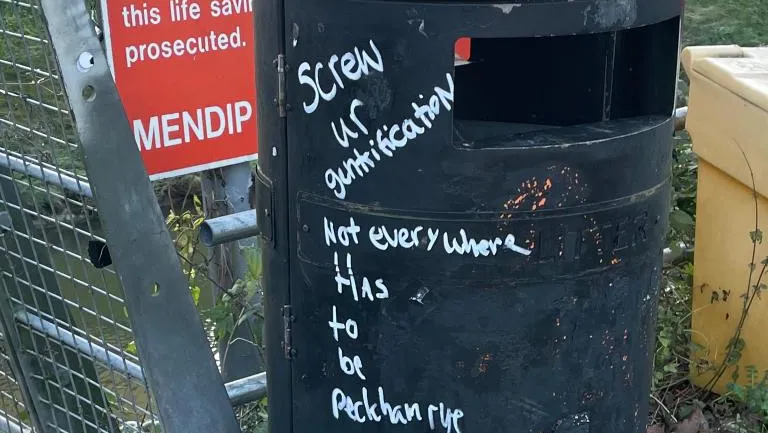 this life savin
prosecuted.
MENDIP
Screw
ur
gentrification
Not everywhere
Has
to
be
Peckham rye
LITTER